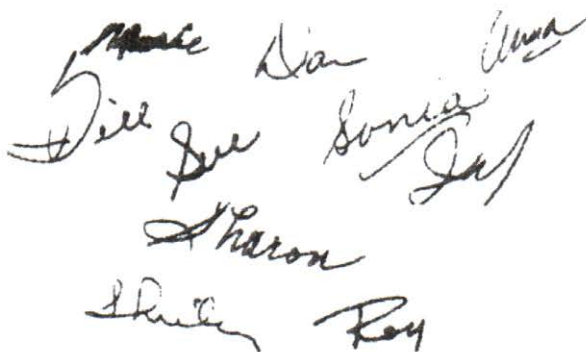 Dian Anna
Bill Sue Sonia
Sharon
Shirley Roy